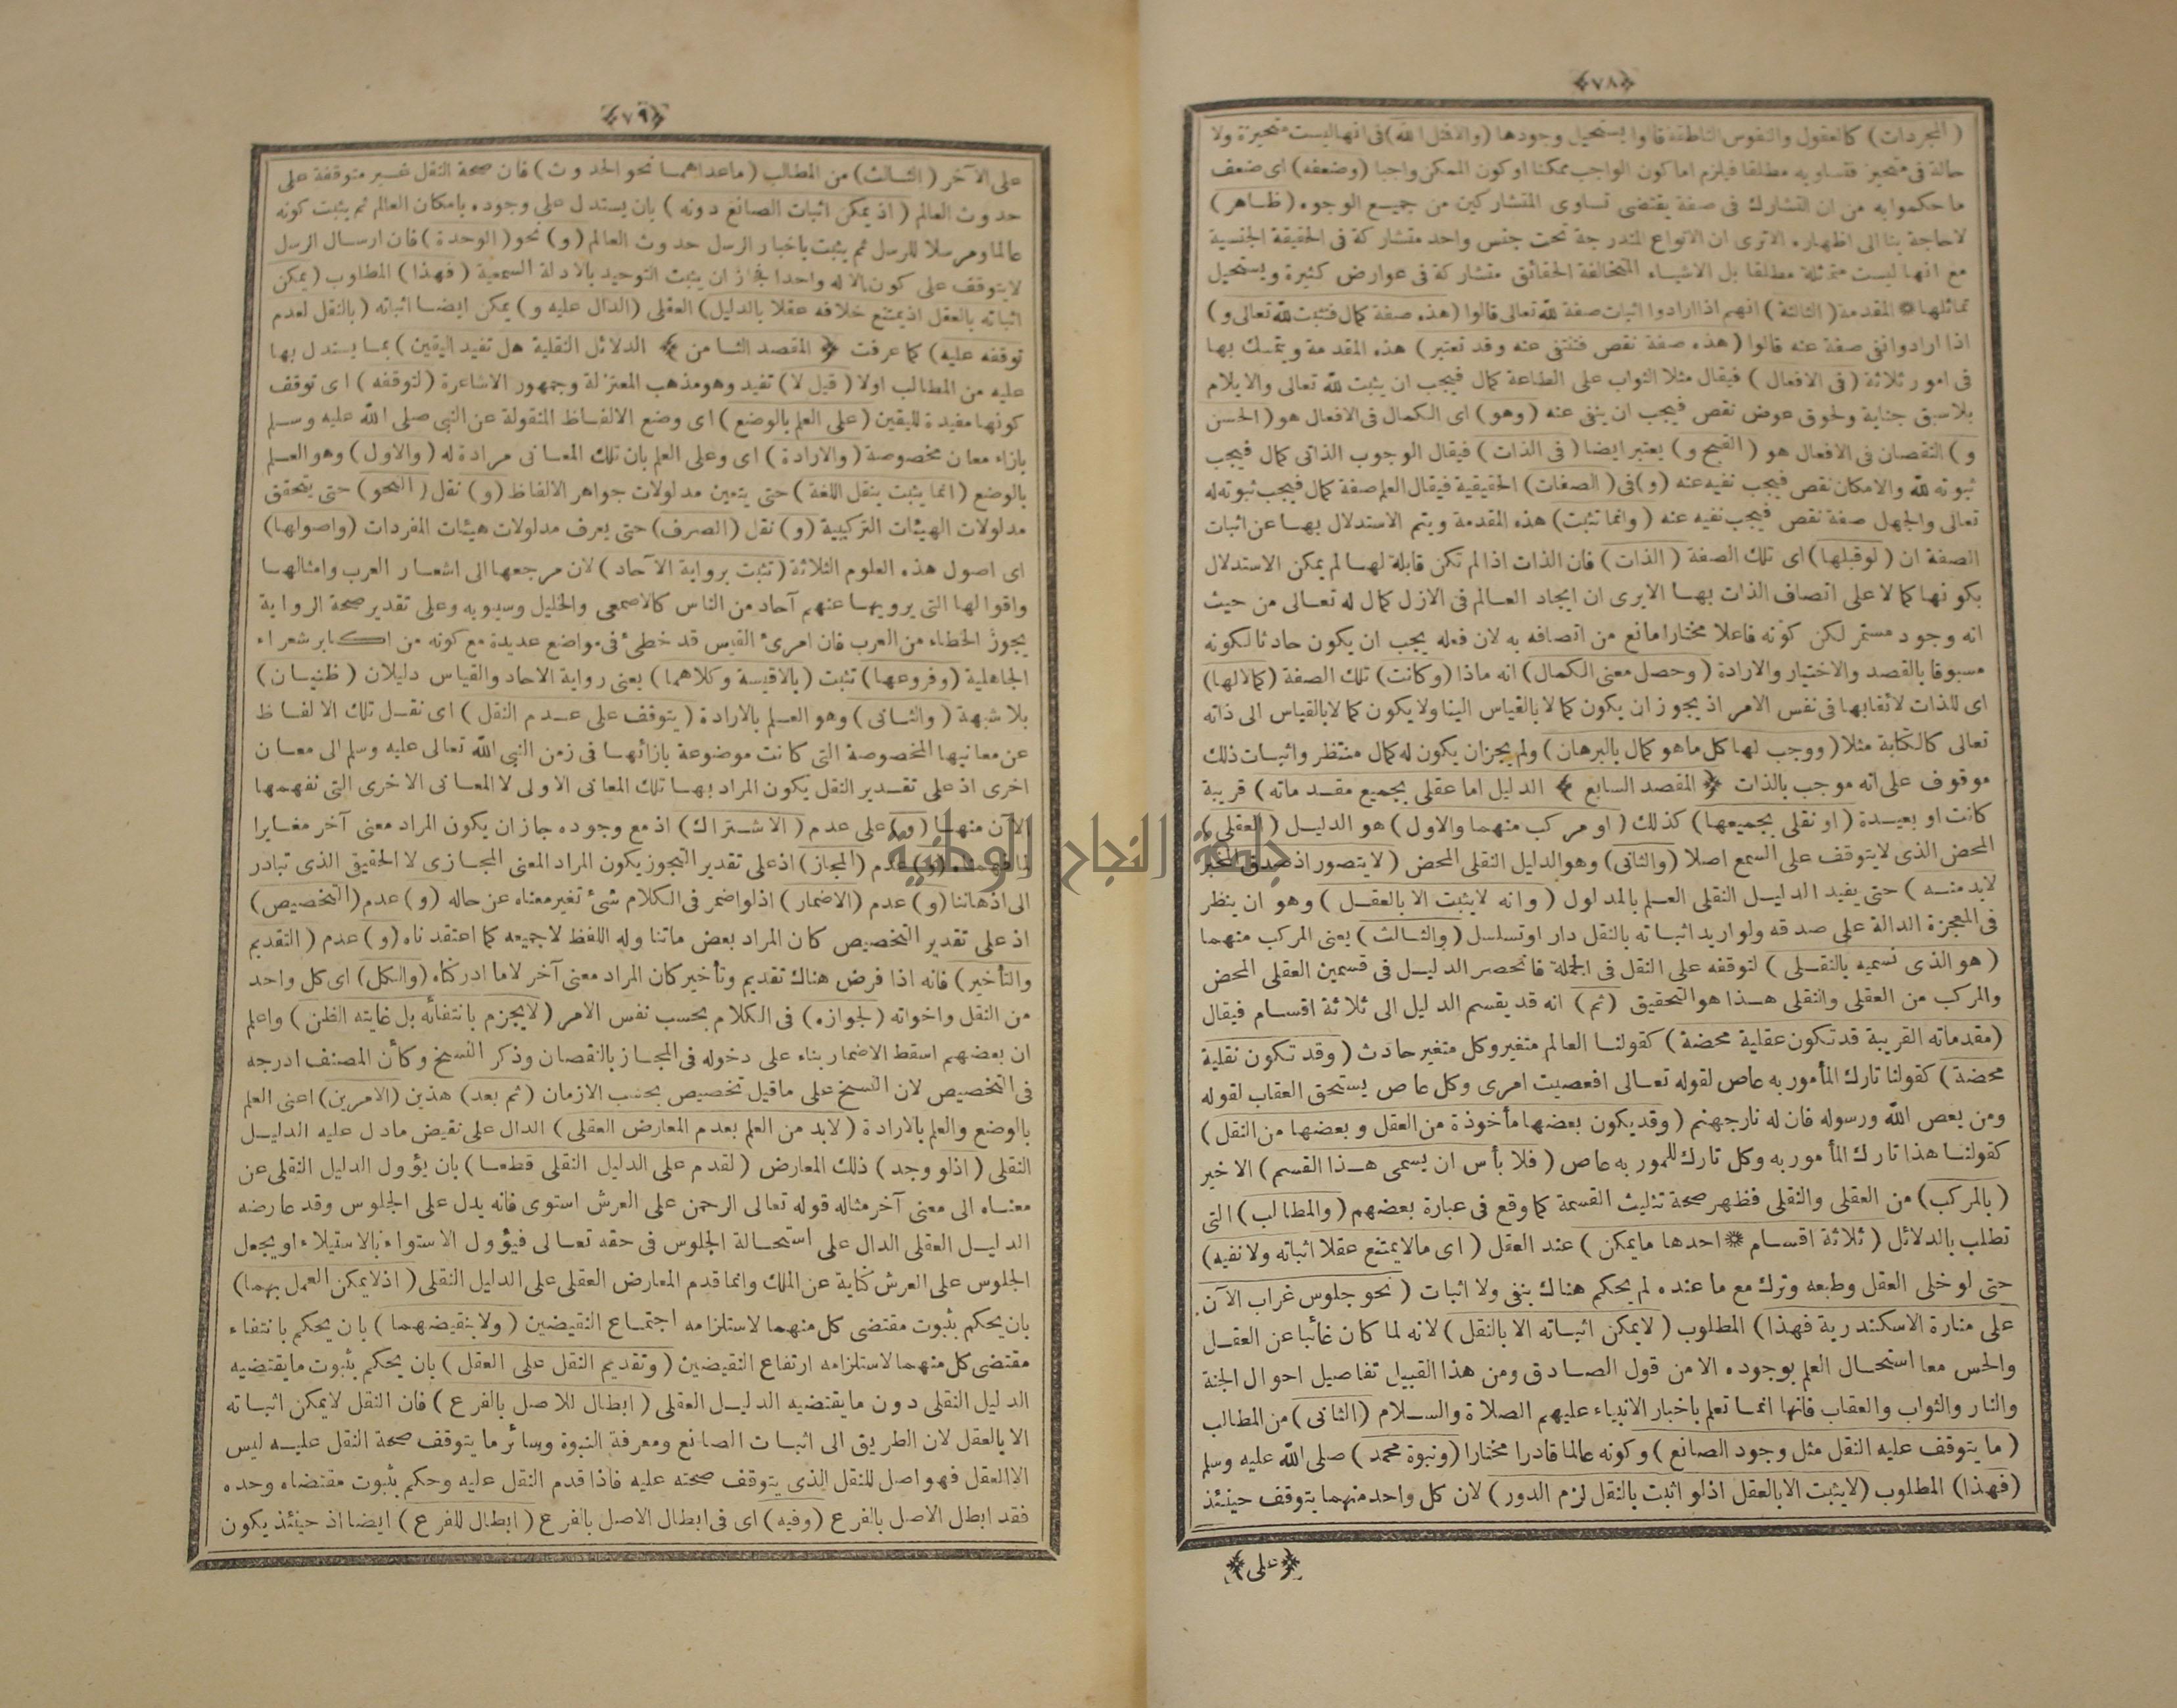 ﴿٧٨﴾
(المجردات) كالعقول والنفوس الناطقة قالوا يستحيل وجودها (والاقتل الله) فى انها ليست متحيزة ولا
حالة فى متحيز فتساويه مطلقا فيلزم اما كون الواجب ممكنا او كون الممكن واجبا (وضعفه) اى ضعف
ما حكموا به من ان التشارك فى صفة يقتضى تساوى المتشاركين من جميع الوجوه (ظاهر)
لا حاجة بنا الى اظهاره الاترى ان الانواع المندرجة تحت جنس واحد متشاركة فى الحقيقة الجنسية
مع انها ليست متماثلة مطلقا بل الاشياء المتخالفة الحقائق متشاركة فى عوارض كثيرة ويستحيل
تماثلها * المقدمة (الثالثة) انهم اذا ارادوا اثبات صفة لله تعالى قالوا (هذه صفة كمال فتثبت لله تعالى و)
اذا ارادوا نفى صفة عنه قالوا (هذه صفة نقص فتنتفى عنه وقد تعتبر) هذه المقدمة ويتمسك بها
فى امور ثلاثة (فى الافعال) فيقال مثلا الثواب على الطاعة كمال فيجب ان يثبت لله تعالى والايلام
بلا سبق جناية ولحوق عوض نقص فيجب ان ينفى عنه (وهو) اى الكمال فى الافعال هو (الحسن
و) النقصان فى الافعال هو (القبح و) يعتبر ايضا (فى الذات) فيقال الوجوب الذاتى كمال فيجب
ثبوته لله والامكان نقص فيجب نفيه عنه (و) فى (الصفات) الحقيقية فيقال العلم صفة كمال فيجب ثبوته له
تعالى والجهل صفة نقص فيجب نفيه عنه (وانما تثبت) هذه المقدمة ويتم الاستدلال بها عن اثبات
الصفة ان (لوقبلها) اى تلك الصفة (الذات) فان الذات اذا لم تكن قابلة لها لم يمكن الاستدلال
بكونها كمالا على اتصاف الذات بها الايرى ان ايجاد العالم فى الازل كمال له تعالى من حيث
انه وجود مستمر لكن كونه فاعلا مختارا مانع من اتصافه به لان فعله يجب ان يكون حادثا لكونه
مسبوقا بالقصد والاختيار والارادة (وحصل معنى الكمال) انه ماذا (وكانت) تلك الصفة (كمالا لها)
اى للذات لائقا بها فى نفس الامر اذ يجوز ان يكون كمالا بالقياس الينا ولا يكون كمالا بالقياس الى ذاته
تعالى كالكتابة مثلا (ووجب لها كل ما هو كمال بالبرهان) ولم يجز ان يكون له كمال منتظر واثبات ذلك
موقوف على انه موجب بالذات ﴿ المقصد السابع ﴾ الدليل اما عقلى بجميع مقدماته) قريبة
كانت او بعيدة (او نقلى بجميعها) كذلك (او مركب منهما والاول) هو الدليل (العقلى)
المحض الذى لا يتوقف على السمع اصلا (والثانى) وهو الدليل النقلى المحض (لا يتصور اذ صدق المخبر
لابد منه) حتى يفيد الدليل النقلى العلم بالمدلول (وانه لا يثبت الا بالعقل) وهو ان ينظر
فى المعجزة الدالة على صدقه ولو اريد اثباته بالنقل دار او تسلسل (والثالث) يعنى المركب منهما
(هو الذى نسميه بالنقلى) لتوقفه على النقل فى الجملة فانحصر الدليل فى قسمين العقلى المحض
والمركب من العقلى والنقلى هذا هو التحقيق (ثم) انه قد يقسم الدليل الى ثلاثة اقسام فيقال
(مقدماته القريبة قد تكون عقلية محضة) كقولنا العالم متغير وكل متغير حادث (وقد تكون نقلية
محضة) كقولنا تارك المأمور به عاص لقوله تعالى افعصيت امرى وكل عاص يستحق العقاب لقوله
ومن يعص الله ورسوله فان له نار جهنم (وقد يكون بعضها مأخوذة من العقل وبعضها من النقل)
كقولنا هذا تارك المأمور به وكل تارك للمور به عاص (فلا بأس ان يسمى هذا القسم) الاخير
(بالمركب) من العقلى والنقلى فظهر صحة تثليث القسمة كما وقع فى عبارة بعضهم (والمطالب) التى
تطلب بالدلائل (ثلاثة اقسام * احدها ما يمكن) عند العقل (اى مالا يمتنع عقلا اثباته ولا نفيه)
حتى لو خلى العقل وطبعه وترك مع ما عنده لم يحكم هناك بنفى ولا اثبات (نحو جلوس غراب الآن
على منارة الاسكندرية فهذا) المطلوب (لا يمكن اثباته الا بالنقل) لانه لما كان غائبا عن العقل
والحس معا استحال العلم بوجوده الا من قول الصادق ومن هذا القبيل تفاصيل احوال الجنة
والنار والثواب والعقاب فانها انما تعلم باخبار الانبياء عليهم الصلاة والسلام (الثانى) من المطالب
(ما يتوقف عليه النقل مثل وجود الصانع) وكونه عالما قادرا مختارا (ونبوة محمد) صلى الله عليه وسلم
(فهذا) المطلوب (لا يثبت الا بالعقل اذ لو اثبت بالنقل لزم الدور) لان كل واحد منهما يتوقف حينئذ
﴿على﴾
﴿٧٩﴾
على الآخر (الثالث) من المطالب (ما عداهما نحو الحدوث) فان صحة النقل غير متوقفة على
حدوث العالم (اذ يمكن اثبات الصانع دونه) بان يستدل على وجوده بامكان العالم ثم يثبت كونه
عالما ومرسلا للرسل ثم يثبت باخبار الرسل حدوث العالم (و) نحو (الوحدة) فان ارسال الرسل
لا يتوقف على كون الاله واحدا فجاز ان يثبت التوحيد بالادلة السمعية (فهذا) المطلوب (يمكن
اثباته بالعقل اذ يمتنع خلافه عقلا بالدليل) العقلى (الدال عليه و) يمكن ايضا اثباته (بالنقل لعدم
توقفه عليه) كما عرفت ﴿ المقصد الثامن ﴾ الدلائل النقلية هل تفيد اليقين) بما يستدل بها
عليه من المطالب اولا (قيل لا) تفيد وهو مذهب المعتزلة وجمهور الاشاعرة (لتوقفه) اى توقف
كونها مفيدة لليقين (على العلم بالوضع) اى وضع الالفاظ المنقولة عن النبى صلى الله عليه وسلم
بازاء معان مخصوصة (والارادة) اى وعلى العلم بان تلك المعانى مرادة له (والاول) وهو العلم
بالوضع (انما يثبت بنقل اللغة) حتى يتعين مدلولات جواهر الالفاظ (و) نقل (النحو) حتى يتحقق
مدلولات الهيئات التركيبية (و) نقل (الصرف) حتى يعرف مدلولات هيئات المفردات (واصولها)
اى اصول هذه العلوم الثلاثة (تثبت برواية الآحاد) لان مرجعها الى اشعار العرب وامثالها
واقوالها التى يرويها عنهم آحاد من الناس كالاصمعى والخليل وسيبويه وعلى تقدير صحة الرواية
يجوز الخطاء من العرب فان امرئ القيس قد خطئ فى مواضع عديدة مع كونه من اكابر شعراء
الجاهلية (وفروعها) تثبت (بالاقيسة وكلاهما) يعنى رواية الاحاد والقياس دليلان (ظنيان)
بلا شبهة (والثانى) وهو العلم بالارادة (يتوقف على عدم النقل) اى نقل تلك الالفاظ
عن معانيها المخصوصة التى كانت موضوعة بازائها فى زمن النبى الله تعالى عليه وسلم الى معان
اخرى اذ على تقدير النقل يكون المراد بها تلك المعانى الاولى لا المعانى الاخرى التى نفهمها
الآن منها (و) على عدم (الاشتراك) اذ مع وجوده جاز ان يكون المراد معنى آخر مغايرا
لما فهمناه (و) عدم (المجاز) اذ على تقدير التجوز يكون المراد المعنى المجازى لا الحقيقى الذى تبادر
الى اذهاننا (و) عدم (الاضمار) اذ لو اضمر فى الكلام شئ تغير معناه عن حاله (و) عدم (التخصيص)
اذ على تقدير التخصيص كان المراد بعض ما تناوله اللفظ لا جميعه كما اعتقدناه (و) عدم (التقديم
والتأخير) فانه اذا فرض هناك تقديم وتأخير كان المراد معنى آخر لا ما ادركناه (والكل) اى كل واحد
من النقل واخواته (لجوازه) فى الكلام بحسب نفس الامر (لا يجزم بانتفائه بل غايته الظن) واعلم
ان بعضهم اسقط الاضمار بناء على دخوله فى المجاز بالنقصان وذكر النسخ وكأن المصنف ادرجه
فى التخصيص لان النسخ على ما قيل تخصيص بحسب الازمان (ثم بعد) هذين (الامرين) اعنى العلم
بالوضع والعلم بالارادة (لابد من العلم بعدم المعارض العقلى) الدال على نقيض مادل عليه الدليل
النقلى (اذ لو وجد) ذلك المعارض (لقدم على الدليل النقلى قطعا) بان يؤول الدليل النقلى عن
معناه الى معنى آخر مثاله قوله تعالى الرحمن على العرش استوى فانه يدل على الجلوس وقد عارضه
الدليل العقلى الدال على استحالة الجلوس فى حقه تعالى فيؤول الاستواء بالاستيلاء او يجعل
الجلوس على العرش كناية عن الملك وانما قدم المعارض العقلى على الدليل النقلى (اذ لا يمكن العمل بهما)
بان يحكم بثبوت مقتضى كل منهما لاستلزامه اجتماع النقيضين (ولا بنقيضهما) بان يحكم بانتفاء
مقتضى كل منهما لاستلزامه ارتفاع النقيضين (وتقديم النقل على العقل) بان يحكم بثبوت ما يقتضيه
الدليل النقلى دون ما يقتضيه الدليل العقلى (ابطال للاصل بالفرع) فان النقل لا يمكن اثباته
الا بالعقل لان الطريق الى اثبات الصانع ومعرفة النبوة وسائر ما يتوقف صحة النقل عليه ليس
الا العقل فهو اصل للنقل الذى يتوقف صحته عليه فاذا قدم النقل عليه وحكم بثبوت مقتضاه وحده
فقد ابطل الاصل بالفرع (وفيه) اى فى ابطال الاصل بالفرع (ابطال للفرع) ايضا اذ حينئذ يكون
جامعة النجاح الوطنية